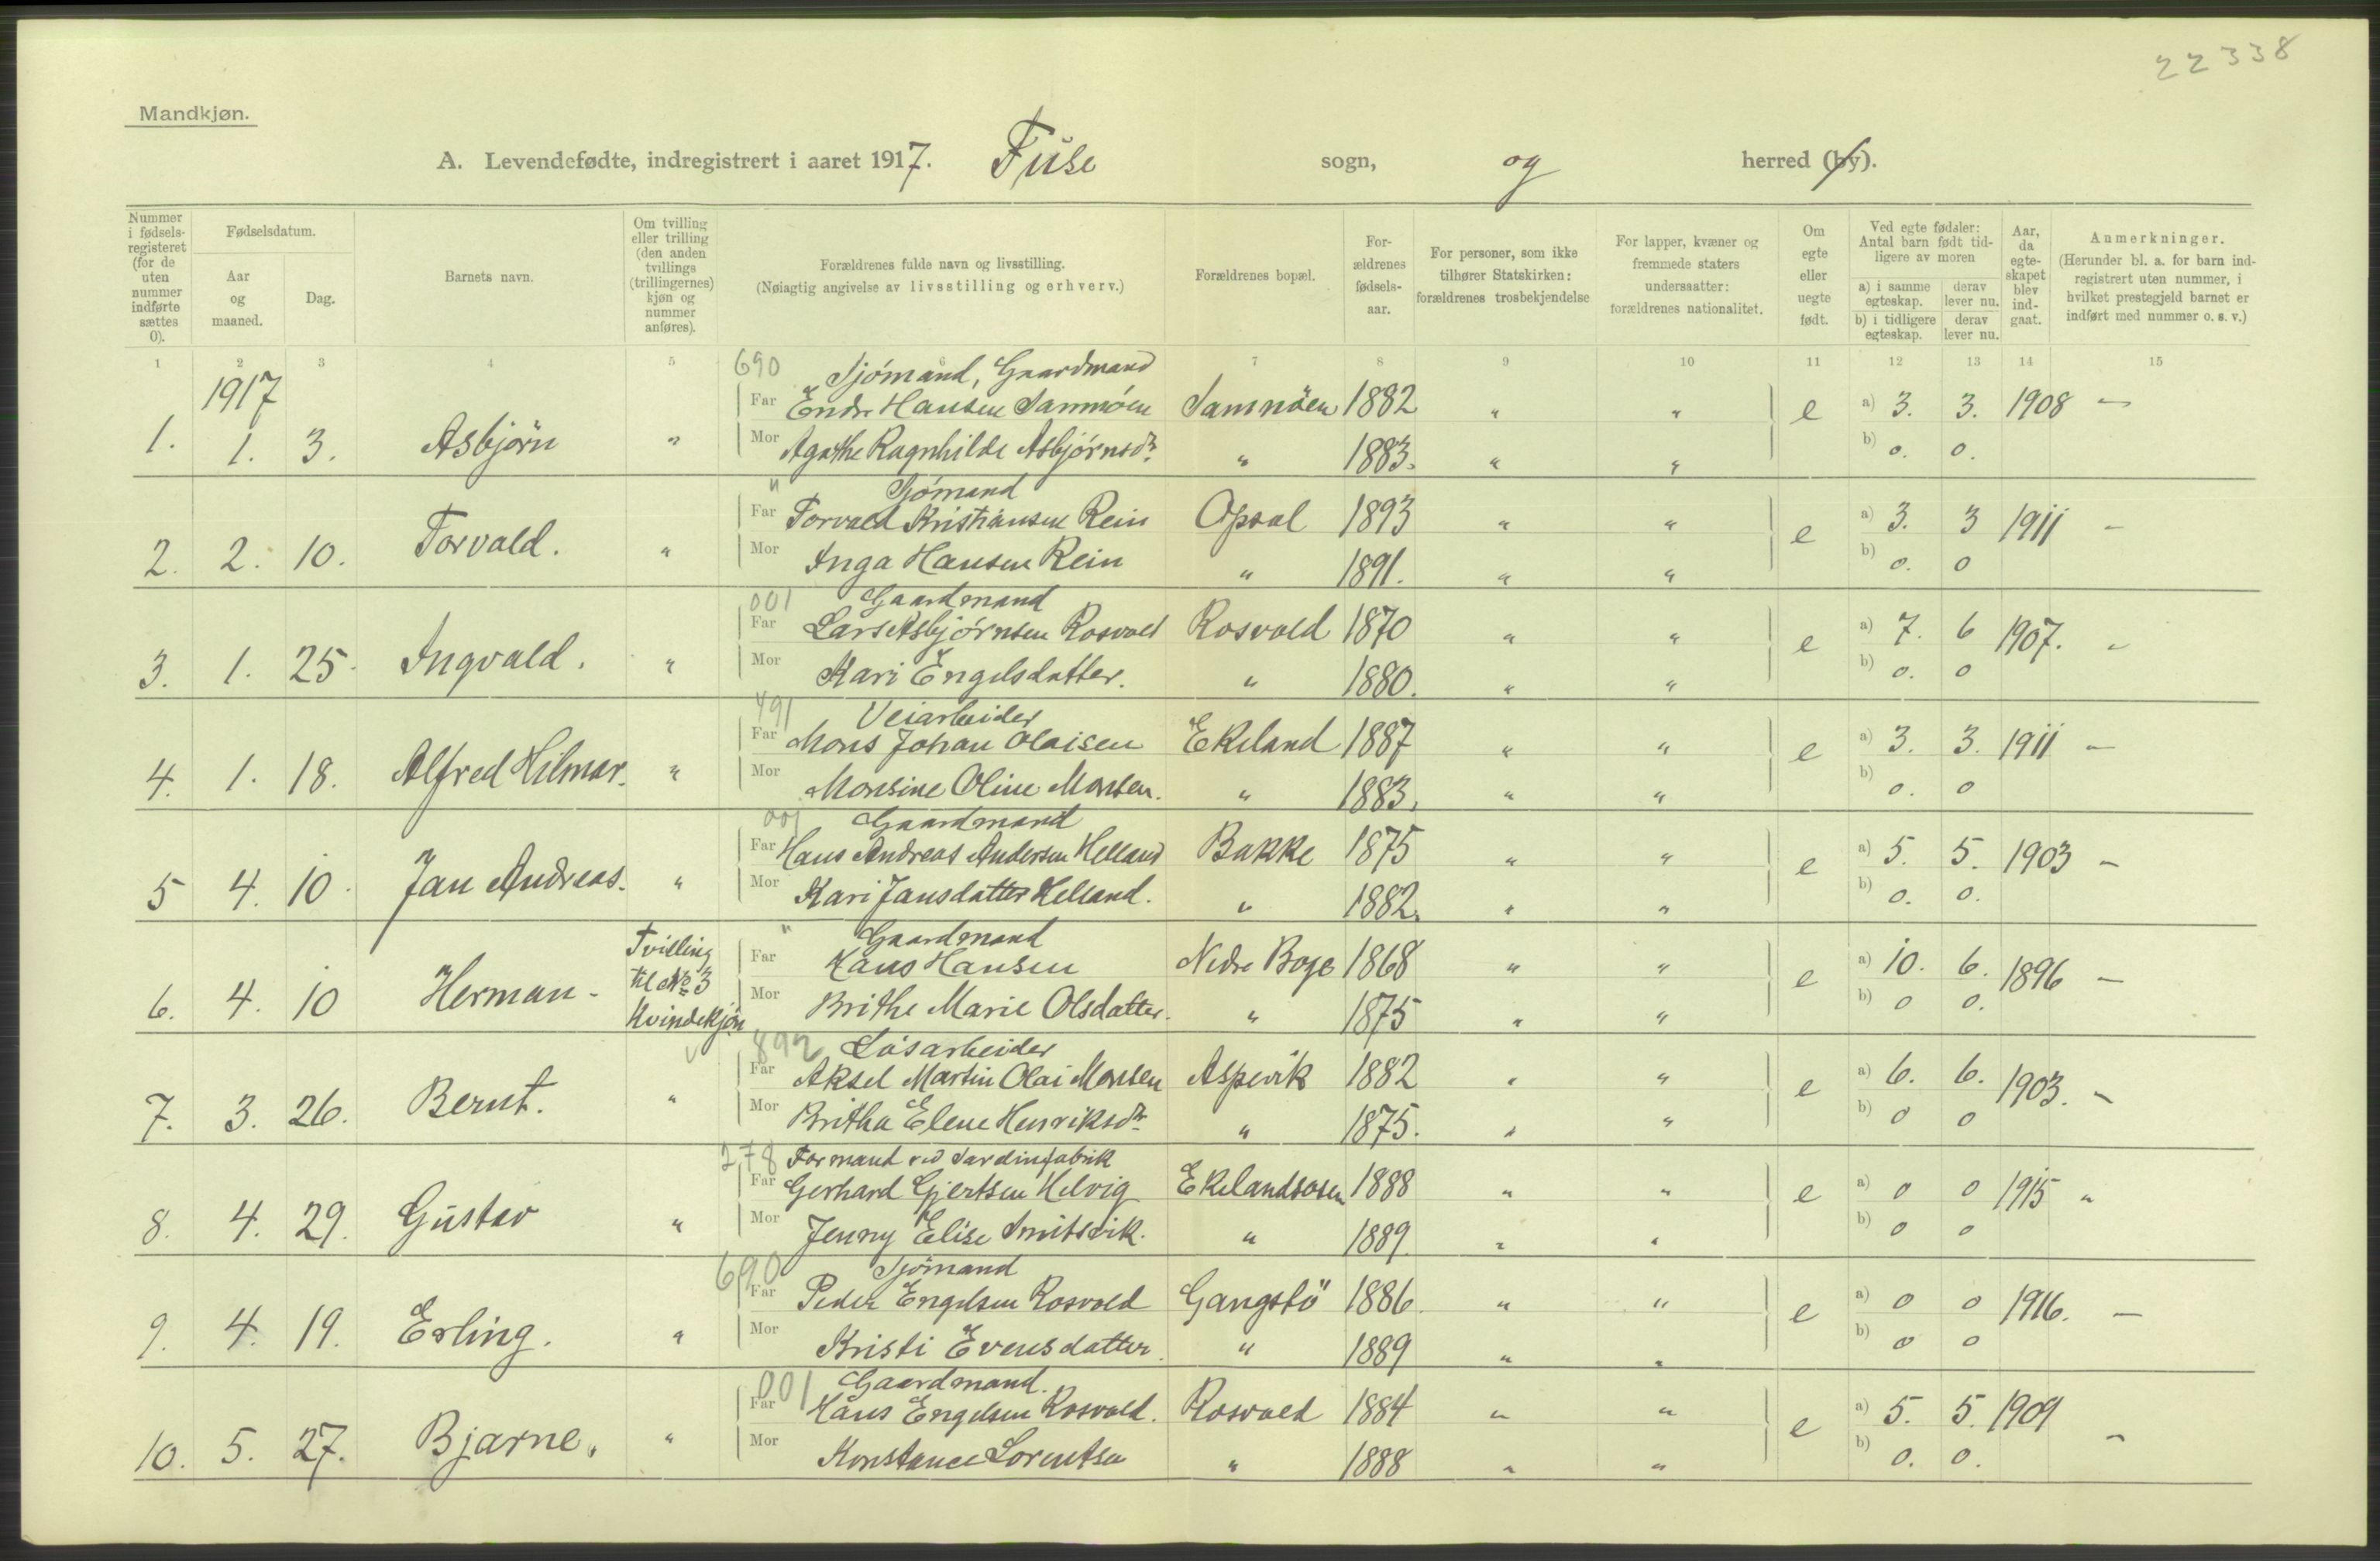 22338
Mandkjøn.
A. Levendefødte, indregistrert i aaret 1917. Fuse sogn, og herred (by).
Nummer i fødsels-registeret (for de uten nummer indførte sættes 0).
Fødselsdatum.
Aar og maaned.
Dag.
Barnets navn.
Om tvilling eller trilling (den anden tvillings (trillingernes) kjøn og nummer anføres).
Forældrenes fulde navn og livsstilling.
(Nøiagtig angivelse av livsstilling og erhverv.)
Forældrenes bopæl.
For-ældrenes fødsels-aar.
For personer, som ikke tilhører Statskirken: forældrenes trosbekjendelse
For lapper, kvæner og fremmede staters undersaatter: forældrenes nationalitet.
Om egte eller uegte født.
Ved egte fødsler: Antal barn født tid-ligere av moren
a) i samme egteskap. derav lever nu.
b) i tidligere egteskap. derav lever nu.
Aar, da egte-skapet blev ind-gaat.
Anmerkninger.
(Herunder bl. a. for barn ind-registrert uten nummer, i hvilket prestegjeld barnet er indført med nummer o. s. v.)
1 2 3 4 5 6 7 8 9 10 11 12 13 14 15
1917
690 Sjömand, Gaardmand
Far Endr Hansen Samnöen Samnöen 1882 " " a) 3. 3. 1908 —
1. 1. 3. Asbjörn " e
Mor Agathe Ragnhilde Asbjörnsdr. " 1883. " " b) 0. 0.
" Sjömand
Far Torvald Kristiansen Rein Opsal 1893 " " a) 3. 3 1911 —
2. 2. 10. Torvald. " e
Mor Inga Hansen Rein " 1891. " " b) 0. 0
001 Gaardmand
Far Lars Asbjörnsen Rosvold Rosvold 1870 " " a) 7. 6 1907. "
3. 1. 25. Ingvald. " e
Mor Kari Engelsdatter. " 1880. " " b) 0. 0
491 Veiarbeider
Far Mons Johan Olaisen Ekeland 1887 " " a) 3. 3. 1911 —
4. 1. 18. Alfred Hilmar. " e
Mor Monsine Oline Monsen. " 1883. " " b) 0. 0
001 Gaardmand
Far Hans Andreas Andersen Helland Bakke 1875 " " a) 5. 5. 1903 —
5 4. 10. Jan Andreas. " e
Mor Kari Jansdatter Helland. " 1882. " " b) 0. 0.
" Gaardmand
Far Hans Hansen Nedre Boge 1868 " " a) 10. 6. 1896 —
6. 4. 10 Herman - Tvilling til No 3 Kvindekjön e
Mor Brithe Marie Olsdatter. " 1875 " " b) 0 0.
892 Lösarbeider
Far Aksel Martin Olai Monsen Aspevik 1882 " " a) 6. 6. 1903. —
7. 3. 26. Bernt. " e
Mor Britha Elene Henriksdr. " 1875. " " b) 0 0
278 Formand ved Sardinfabrik
Far Gerhard Gjertsen Helvig Ekelandsosen 1888 " " a) 0 0 1915 "
8. 4. 29. Gustav " e
Mor Jenny Elise Smitsvik. " 1889. " " b) 0 0
690 Sjömand
Far Peder Engelsen Rosvold Gangstö 1886. " " a) 0 0 1916. —
9. 4. 19. Erling. " e
Mor Kristi Evensdatter. " 1889 " " b) 0 0
001 Gaardmand.
Far Hans Engelsen Rosvold. Rosvold 1884 " " a) 5. 5. 1909
10. 5. 27. Bjarne. " e —
Mor Konstance Lorentsen " 1888 " " b) 0. 0.